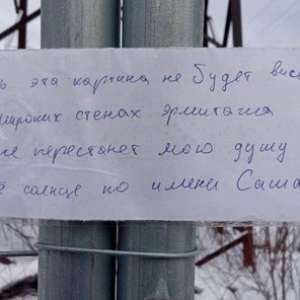 эта картина не будет
широких стенах эрмитажа
не перестанет мою душу
солнце по имени Саша